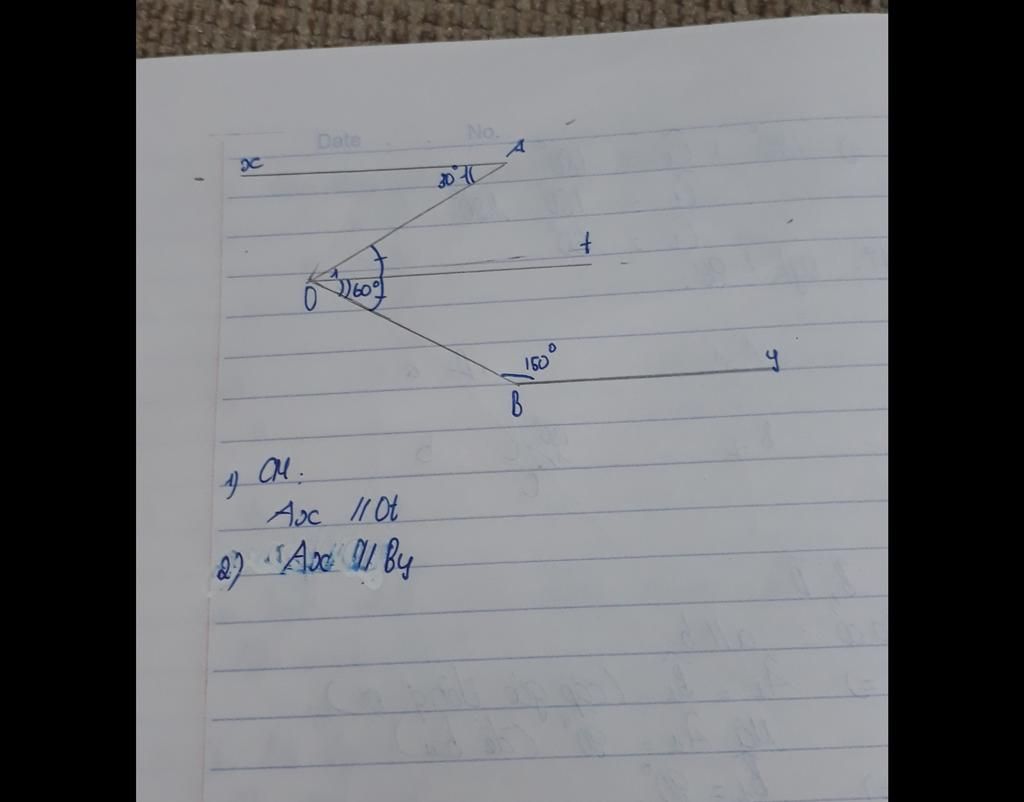 Date No.
x A
30°
t
1
O 60°
150°
y
B
1) CM:
Ax // Ot
2) Ax // By